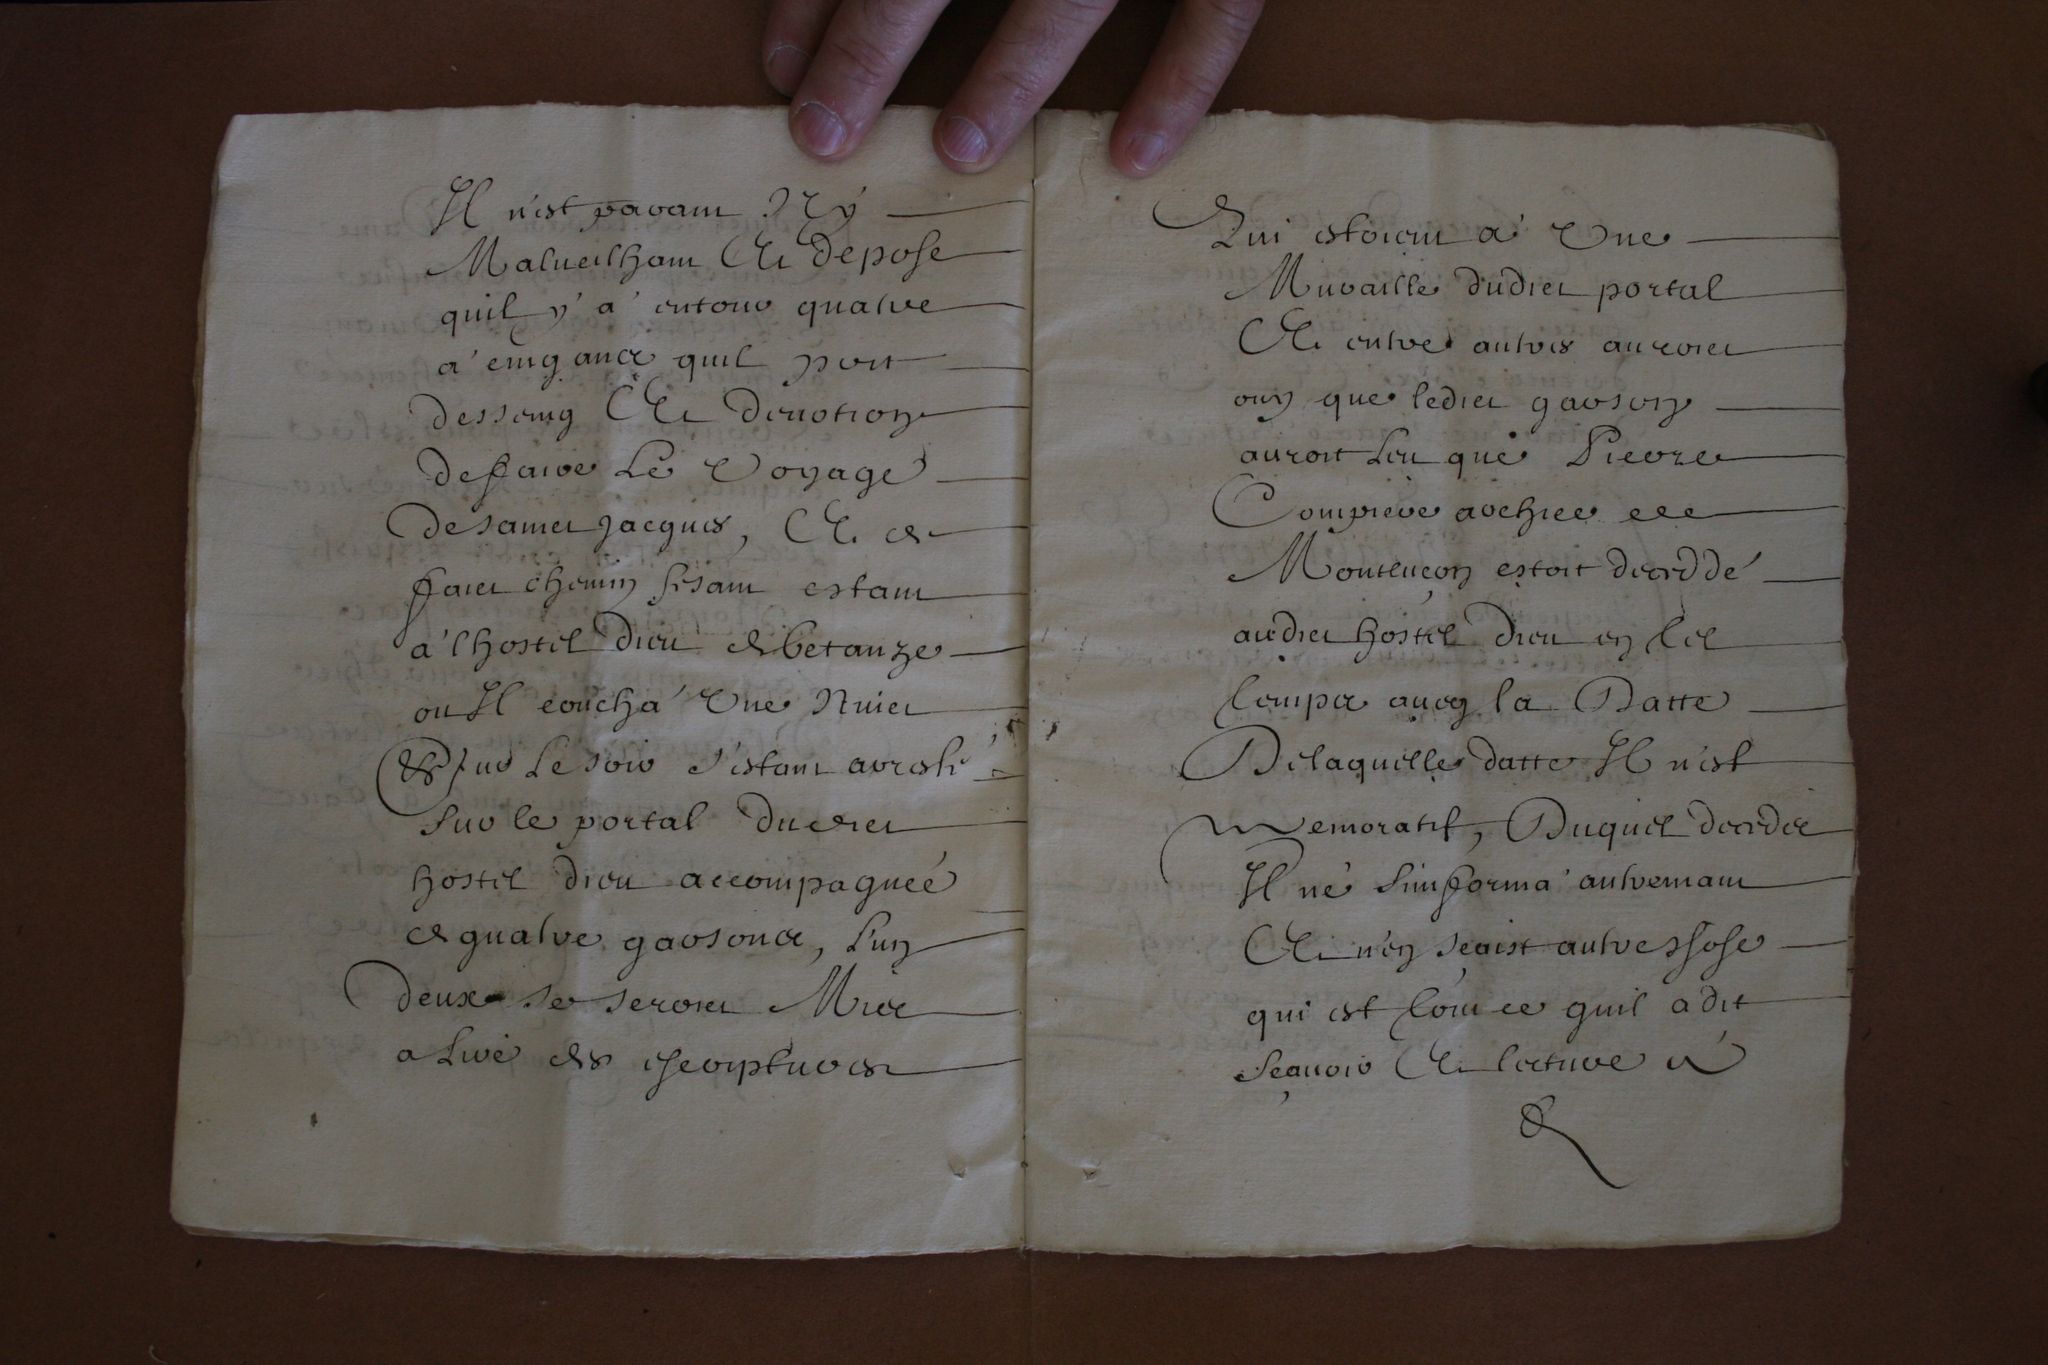 Il n'est parant Ny
Malveilhant Et depose
quil y à entour quatre
à cinq ances quil prit
desseing Et devotion
de faire Le Voyage
de sainct Jacques, Et de
faict chemin fesant estant
à l'hostel Dieu de betanze
ou Il coucha Une Nuict
Et sur Le soir s'estant aresté
sur le portal dudict
hostel dieu accompagneé
de quatre garsonces, L'un
deux se seroict Mice
a Lire des escriptures
Qui estoient a Une
Muraille dudict portal
Et entre autres auroict
ouy que ledict garson
auroit Leu que Pierre
Compieve
Montencon estoit deceddé
audict hostel Dieu en tel
tempce avecq la Datte
De laquelle datte Il n'est
memoratif, Duquel deceder
Il né s'imforma autremant
Et n'en scaist autre chose
qui est tout ce quil a dit
sçavoir Et lecture